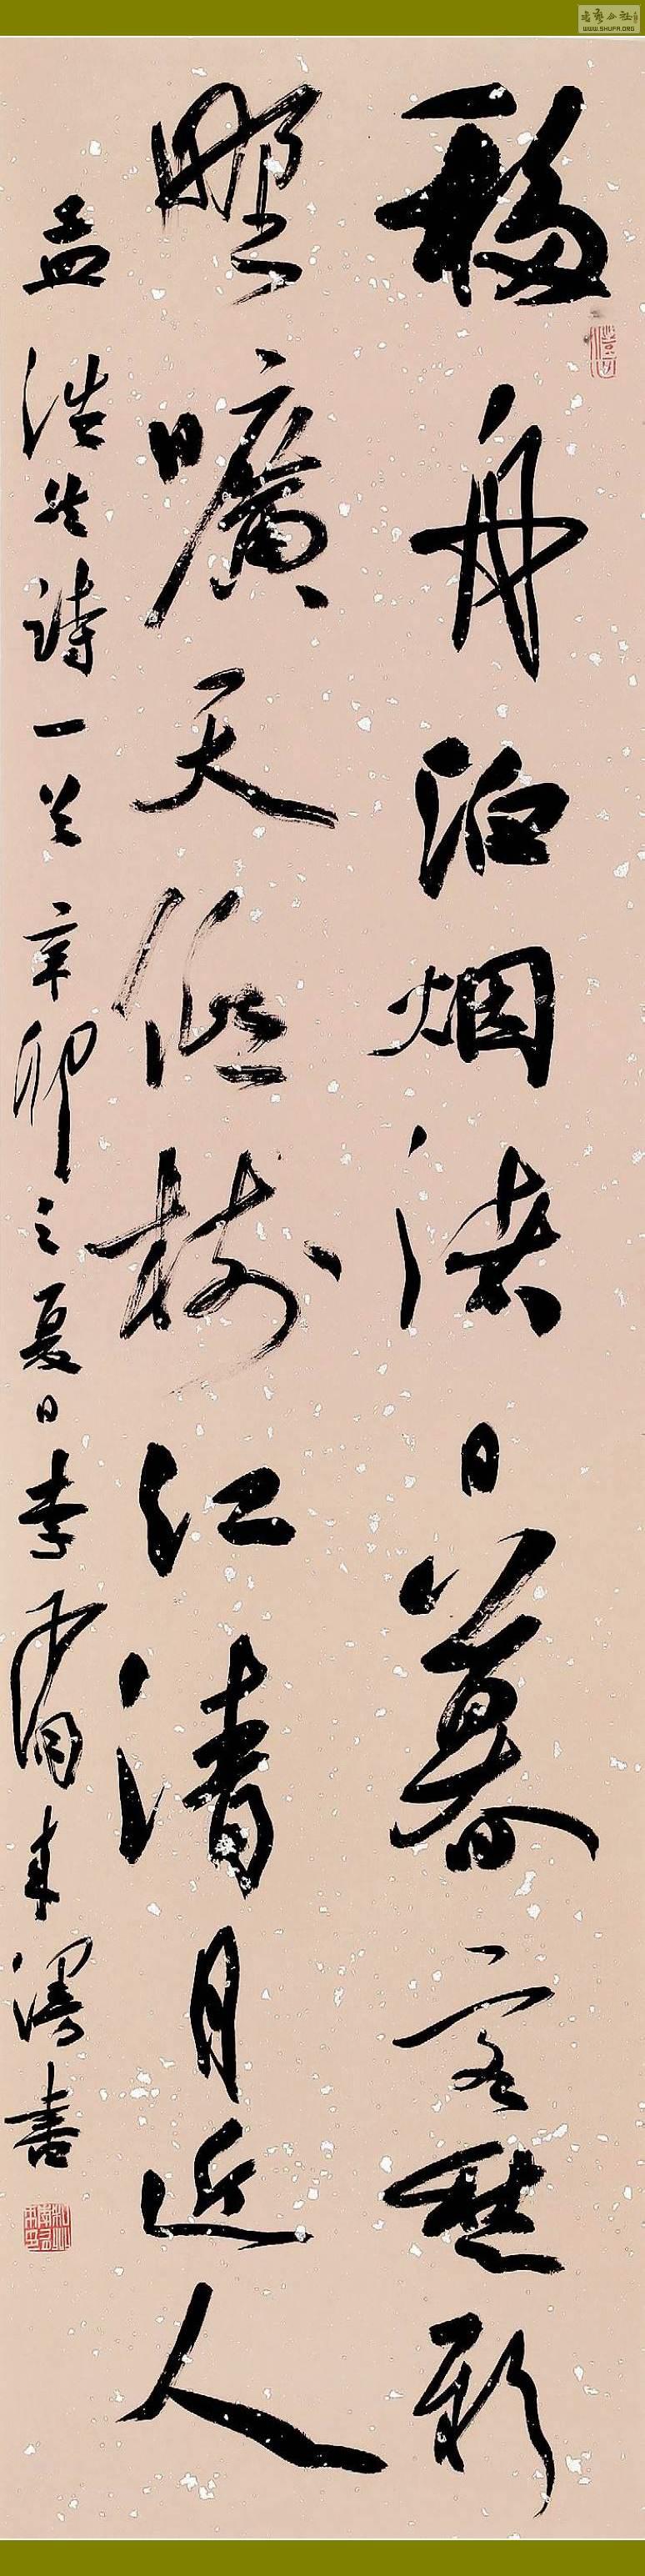 移舟泊烟渚日暮客愁新
野曠天低樹江清月近人
孟浩然詩一首辛卯之夏日李甫来漫書
WWW.SHUFA.ORG